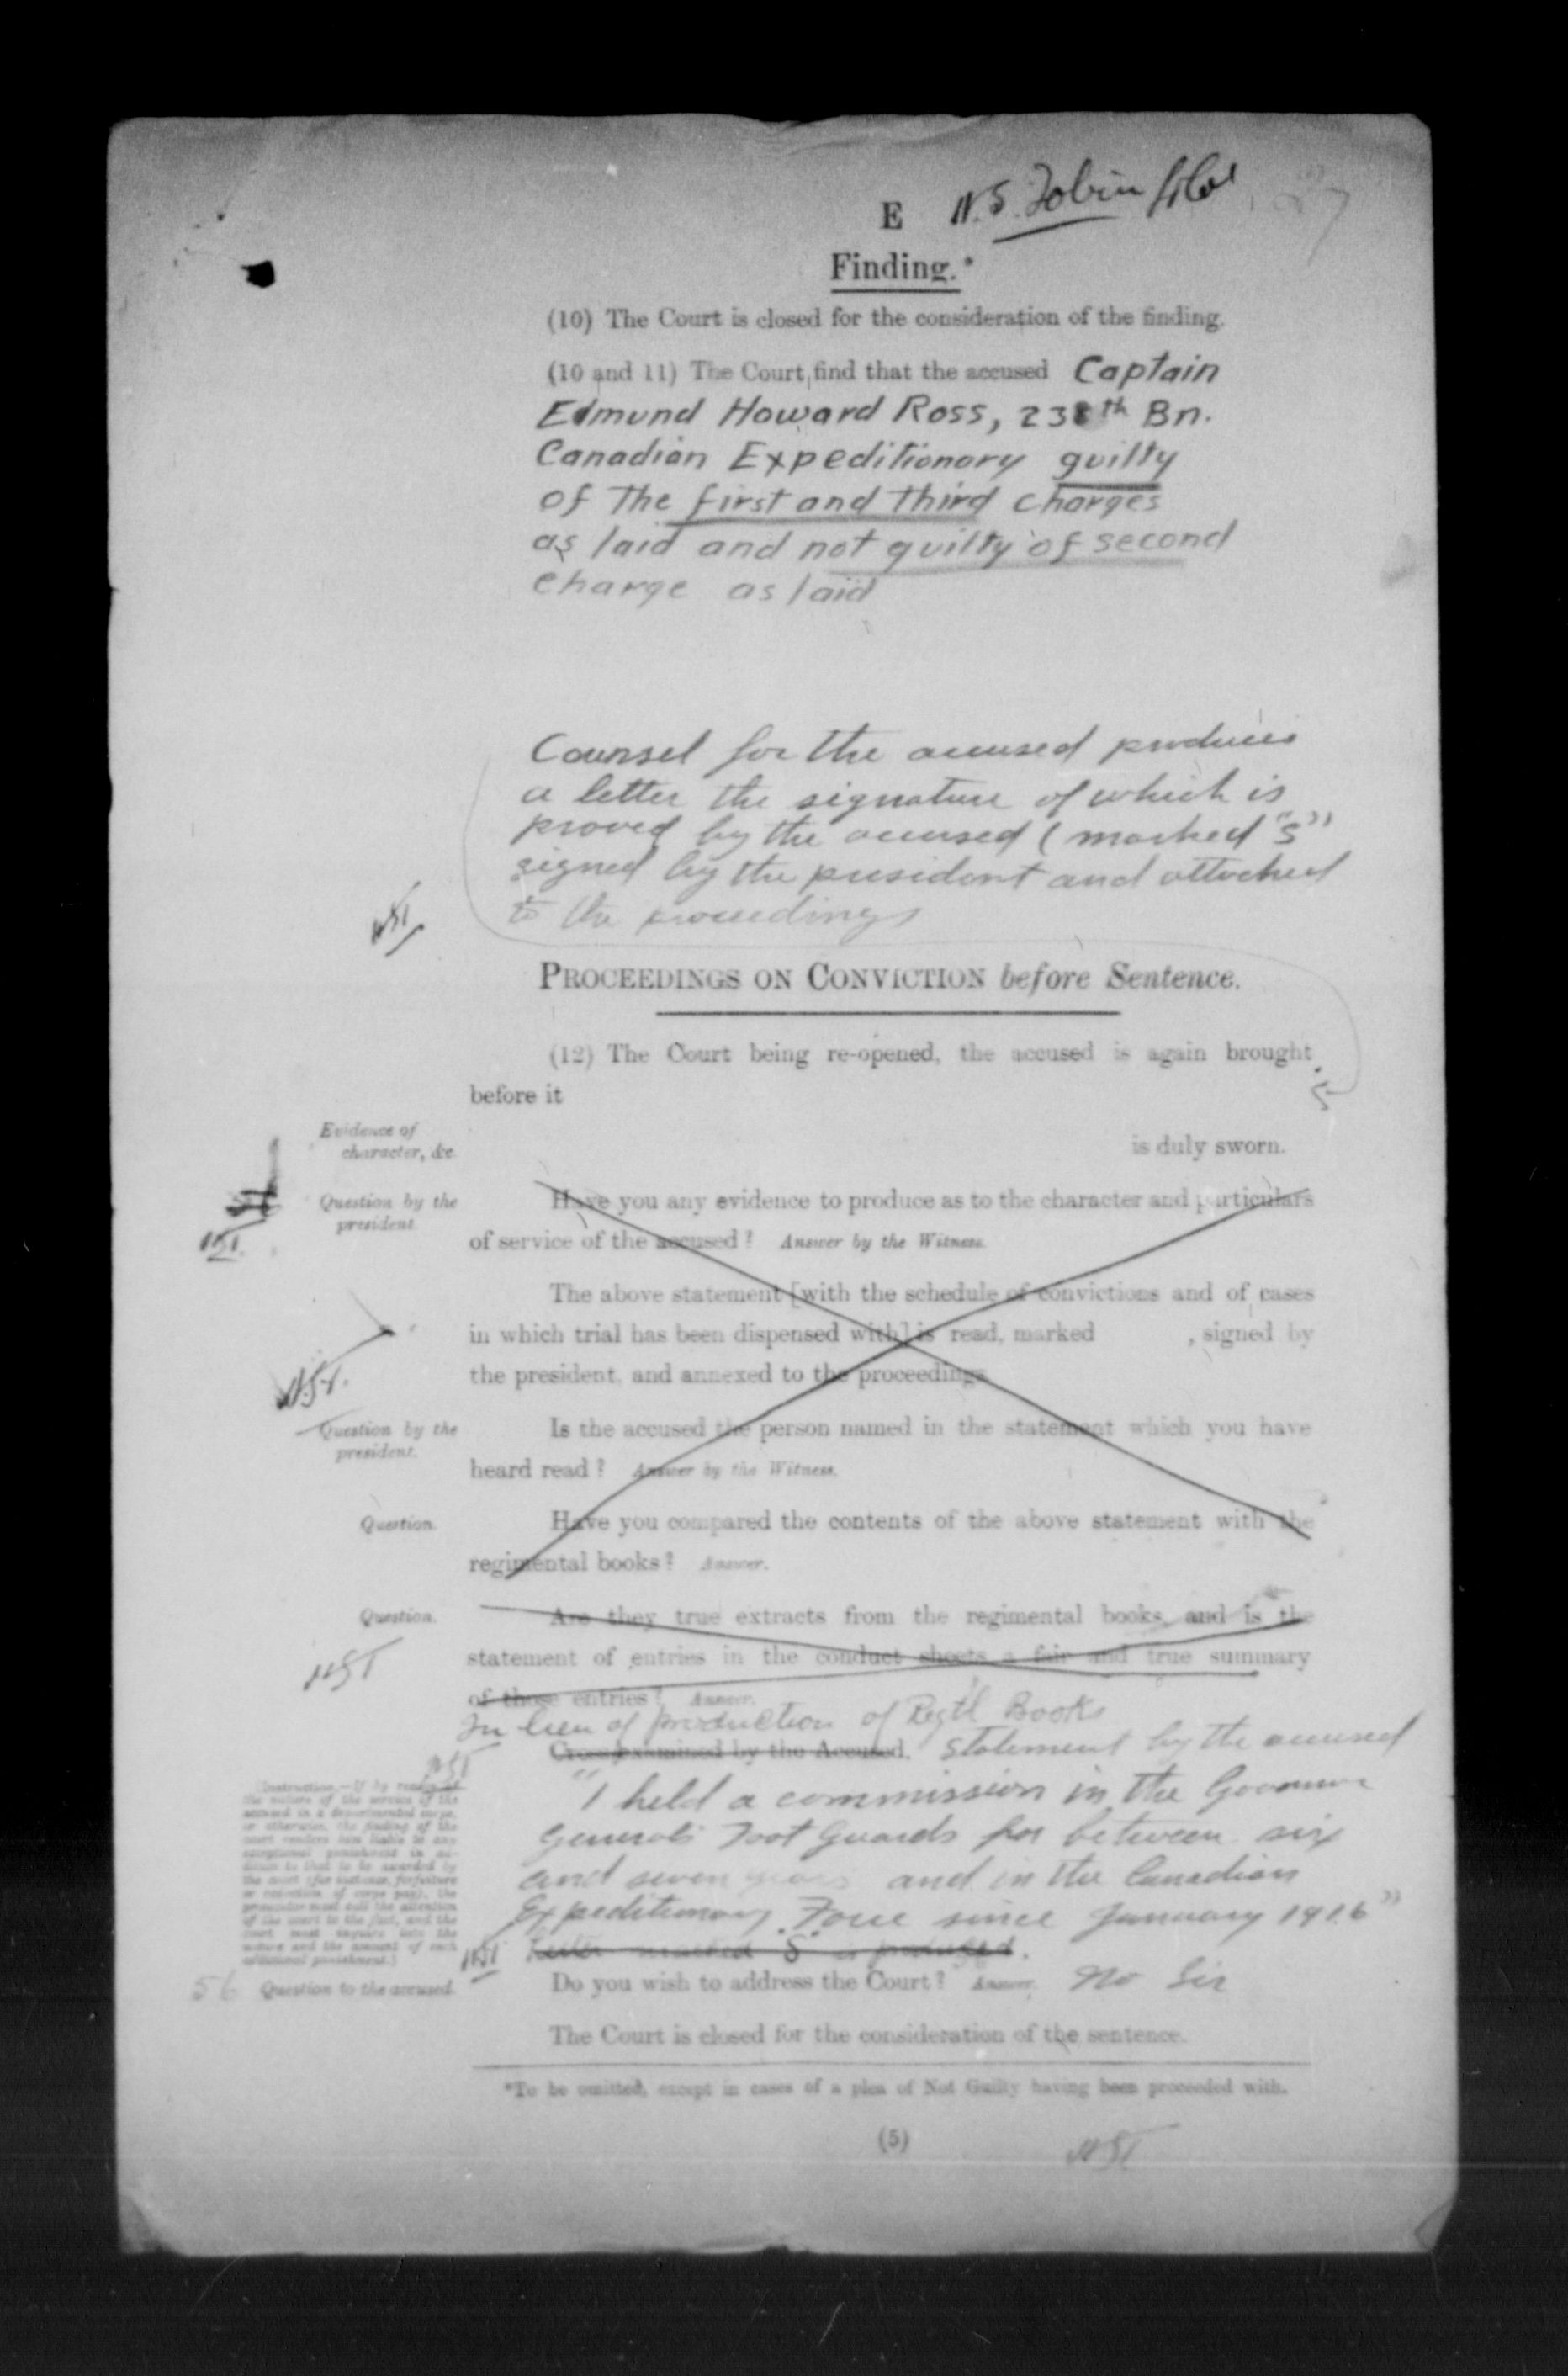 E H.S. Tobin
Finding.*
(10) The Court is closed for the consideration of the finding.
(10 and 11) The Court find that the accused Captain
Edmund Howard Ross, 238th Bn.
Canadian Expeditionary guilty
of The first and third charges
as laid and not guilty of second
charge as laid
Counsel for the accused produces
a letter the signature of which is
proved by the accused (marked "S"
signed by the president and attached
to the proceedings
HST
PROCEEDINGS ON CONVICTION before Sentence.
(12) The Court being re-opened, the accused is again brought
before it
Evidence of
character, &c.
is duly sworn.
Question by the
president.
Have you any evidence to produce as to the character and particulars
of service of the accused? Answer by the Witness.
HST.
The above statement [with the schedule of convictions and of cases
in which trial has been dispensed with] is read, marked , signed by
the president, and annexed to the proceedings
HST.
Question by the
president.
Is the accused the person named in the statement which you have
heard read? Answer by the Witness.
Question.
Have you compared the contents of the above statement with the
regimental books? Answer.
Question.
Are they true extracts from the regimental books, and is the
statement of entries in the conduct sheets a fair and true summary
of those entries? Answer.
HST
In lieu of production of Regtl Books
Cross-examined by the Accused. Statement by the accused
HST
"I held a commission in the Governor
Generals Foot Guards for between six
and seven years and in the Canadian
Expeditionary Force since January 1916"
[Instruction.—If by reason of
the nature of the service of the
accused in a departmental corps,
or otherwise, the finding of the
court renders him liable to any
exceptional punishment in ad-
dition to that to be awarded by
the court (for instance, forfeiture
or reduction of corps pay), the
prosecutor must call the attention
of the court to the fact, and the
court must enquire into the
nature and the amount of such
additional punishment.]
HST Letter marked "S" is produced.
56 Question to the accused.
Do you wish to address the Court? Answer. No Sir
The Court is closed for the consideration of the sentence.
*To be omitted, except in cases of a plea of Not Guilty having been proceeded with.
(5)
HST